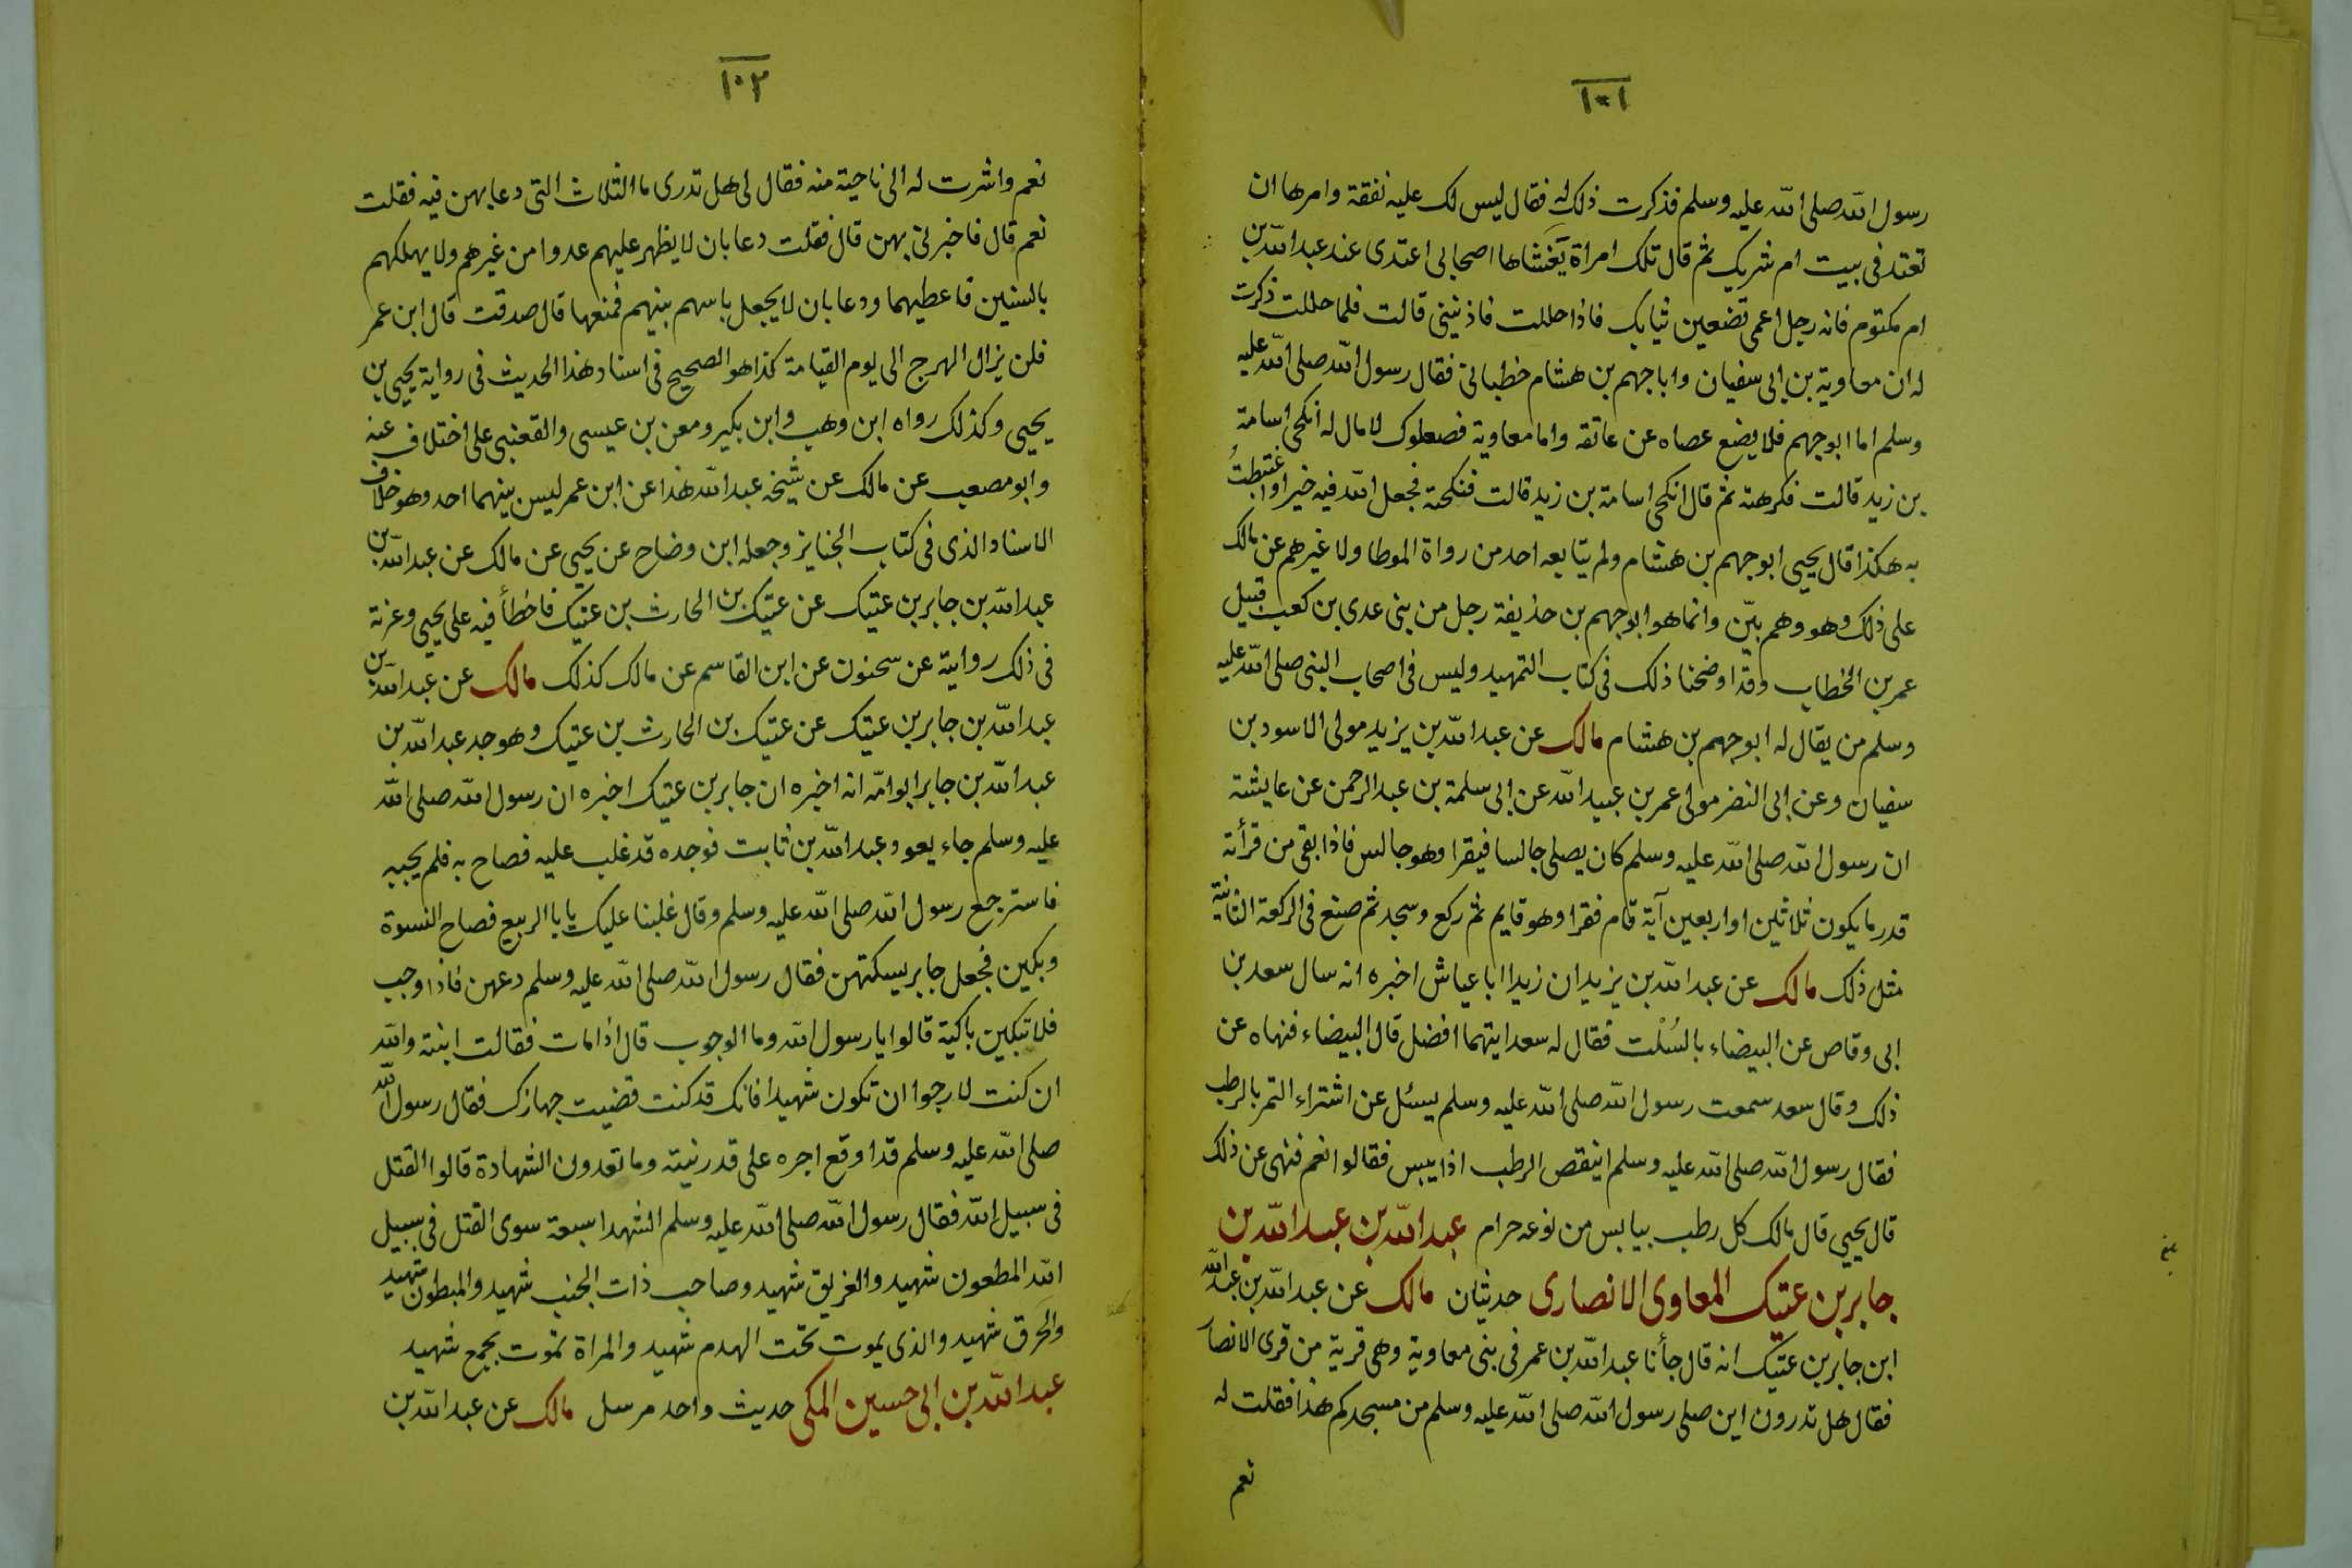 ١٠١
رسول الله صلى الله عليه وسلم فذكرت ذلك له فقال ليس لك عليه نفقة وامرها ان
تعتد فى بيت ام شريك ثم قال تلك امراة يَغشاها اصحابى اعتدى عند عبد الله بن
ام مكتوم فانه رجل اعمى تضعين ثيابك فاذا حللت فاذنينى قالت فلما حللت ذكرت
له ان معاوية بن ابى سفيان واباجهم بن هشام خطبانى فقال رسول الله صلى الله عليه
وسلم اما ابوجهم فلا يضع عصاه عن عاتقه واما معاوية فصعلوك لا مال له انكحى اسامة
بن زيد قالت فكرهته ثم قال انكحى اسامة بن زيد قالت فنكحته فجعل الله فيه خيرا واغتبطتُ
به هكذا قال يحيى ابوجهم بن هشام ولم يتابعه احد من رواة الموطا ولا غيرهم عن مالك
على ذلك وهو وهم بيّن وانما هو ابوجهم بن حذيفة رجل من بنى عدى بن كعب قبيل
عمر بن الخطاب وقد اوضحنا ذلك فى كتاب التمهيد وليس فى اصحاب النبى صلى الله عليه
وسلم من يقال له ابوجهم بن هشام مالك عن عبد الله بن يزيد مولى الاسود بن
سفيان وعن ابى النضر مولى عمر بن عبيد الله عن ابى سلمة بن عبد الرحمن عن عايشة
ان رسول الله صلى الله عليه وسلم كان يصلى جالسا فيقرا وهو جالس فاذا بقى من قرأته
قدر ما يكون ثلاثين او اربعين آية قام فقرا وهو قايم ثم ركع وسجد ثم صنع فى الركعة الثانية
مثل ذلك مالك عن عبد الله بن يزيد ان زيدا ابا عياش اخبره انه سال سعد بن
ابى وقاص عن البيضاء بالسُلْت فقال له سعد ايتهما افضل قال البيضاء فنهاه عن
ذلك وقال سعد سمعت رسول الله صلى الله عليه وسلم يسئل عن اشتراء التمر بالرطب
فقال رسول الله صلى الله عليه وسلم اينقص الرطب اذا يبس فقالوا نعم فنهى عن ذلك
قال يحيى قال مالك كل رطب بيابس من نوعه حرام عبد الله بن عبد الله بن
جابر بن عتيك المعاوى الانصارى حديثان مالك عن عبد الله بن عبد الله
ابن جابر بن عتيك انه قال جأنا عبد الله بن عمر فى بنى معاوية وهى قرية من قرى الانصار
فقال هل تدرون اين صلى رسول الله صلى الله عليه وسلم من مسجدكم هذا فقلت له
نعم
١٠٢
نعم واشرت له الى ناحية منه فقال لى هل تدرى ما الثلاث التى دعا بهن فيه فقلت
نعم قال فاخبرنى بهن قال فقلت دعا بان لا يظهر عليهم عدوا من غيرهم ولا يهلكهم
بالسنين فاعطيهما ودعا بان لا يجعل باسهم بينهم فمنعها قال صدقت قال ابن عمر
فلن يزال الهرج الى يوم القيامة كذا هو الصحيح فى اسناد هذا الحديث فى رواية يحيى بن
يحيى وكذلك رواه ابن وهب وابن بكير ومعن بن عيسى والقعنبى على اختلاف عنه
وابو مصعب عن مالك عن شيخه عبد الله هذا عن ابن عمر ليس بينهما احد وهو خلاف
الاسناد الذى فى كتاب الجنايز وجعله ابن وضاح عن يحيى عن مالك عن عبد الله بن
عبد الله بن جابر بن عتيك عن عتيك بن الحارث بن عتيك فاخطأ فيه على يحيى وغرته
فى ذلك رواية عن سحنون عن ابن القاسم عن مالك كذلك مالك عن عبد الله بن
عبد الله بن جابر بن عتيك عن عتيك بن الحارث بن عتيك وهو جد عبد الله بن
عبد الله بن جابر ابوامّه انه اخبره ان جابر بن عتيك اخبره ان رسول الله صلى الله
عليه وسلم جاء يعود عبد الله بن ثابت فوجده قد غلب عليه فصاح به فلم يجبه
فاسترجع رسول الله صلى الله عليه وسلم وقال غلبنا عليك يابا الربيع فصاح النسوة
وبكين فجعل جابر يسكتهن فقال رسول الله صلى الله عليه وسلم دعهن فاذا وجب
فلا تبكين باكية قالوا يا رسول الله وما الوجوب قال اذا مات فقالت ابنته والله
ان كنت لارجوا ان تكون شهيدا فانك قد كنت قضيت جهازك فقال رسول الله
صلى الله عليه وسلم قد اوقع اجره على قدر نيته وما تعدون الشهادة قالوا القتل
فى سبيل الله فقال رسول الله صلى الله عليه وسلم الشهدا سبعة سوى القتل فى سبيل
الله المطعون شهيد والغريق شهيد وصاحب ذات الجنب شهيد والمبطون شهيد
والحَرق شهيد والذى يموت تحت الهدم شهيد والمراة تموت بجمع شهيد
عبد الله بن ابى حسين المكى حديث واحد مرسل مالك عن عبد الله بن